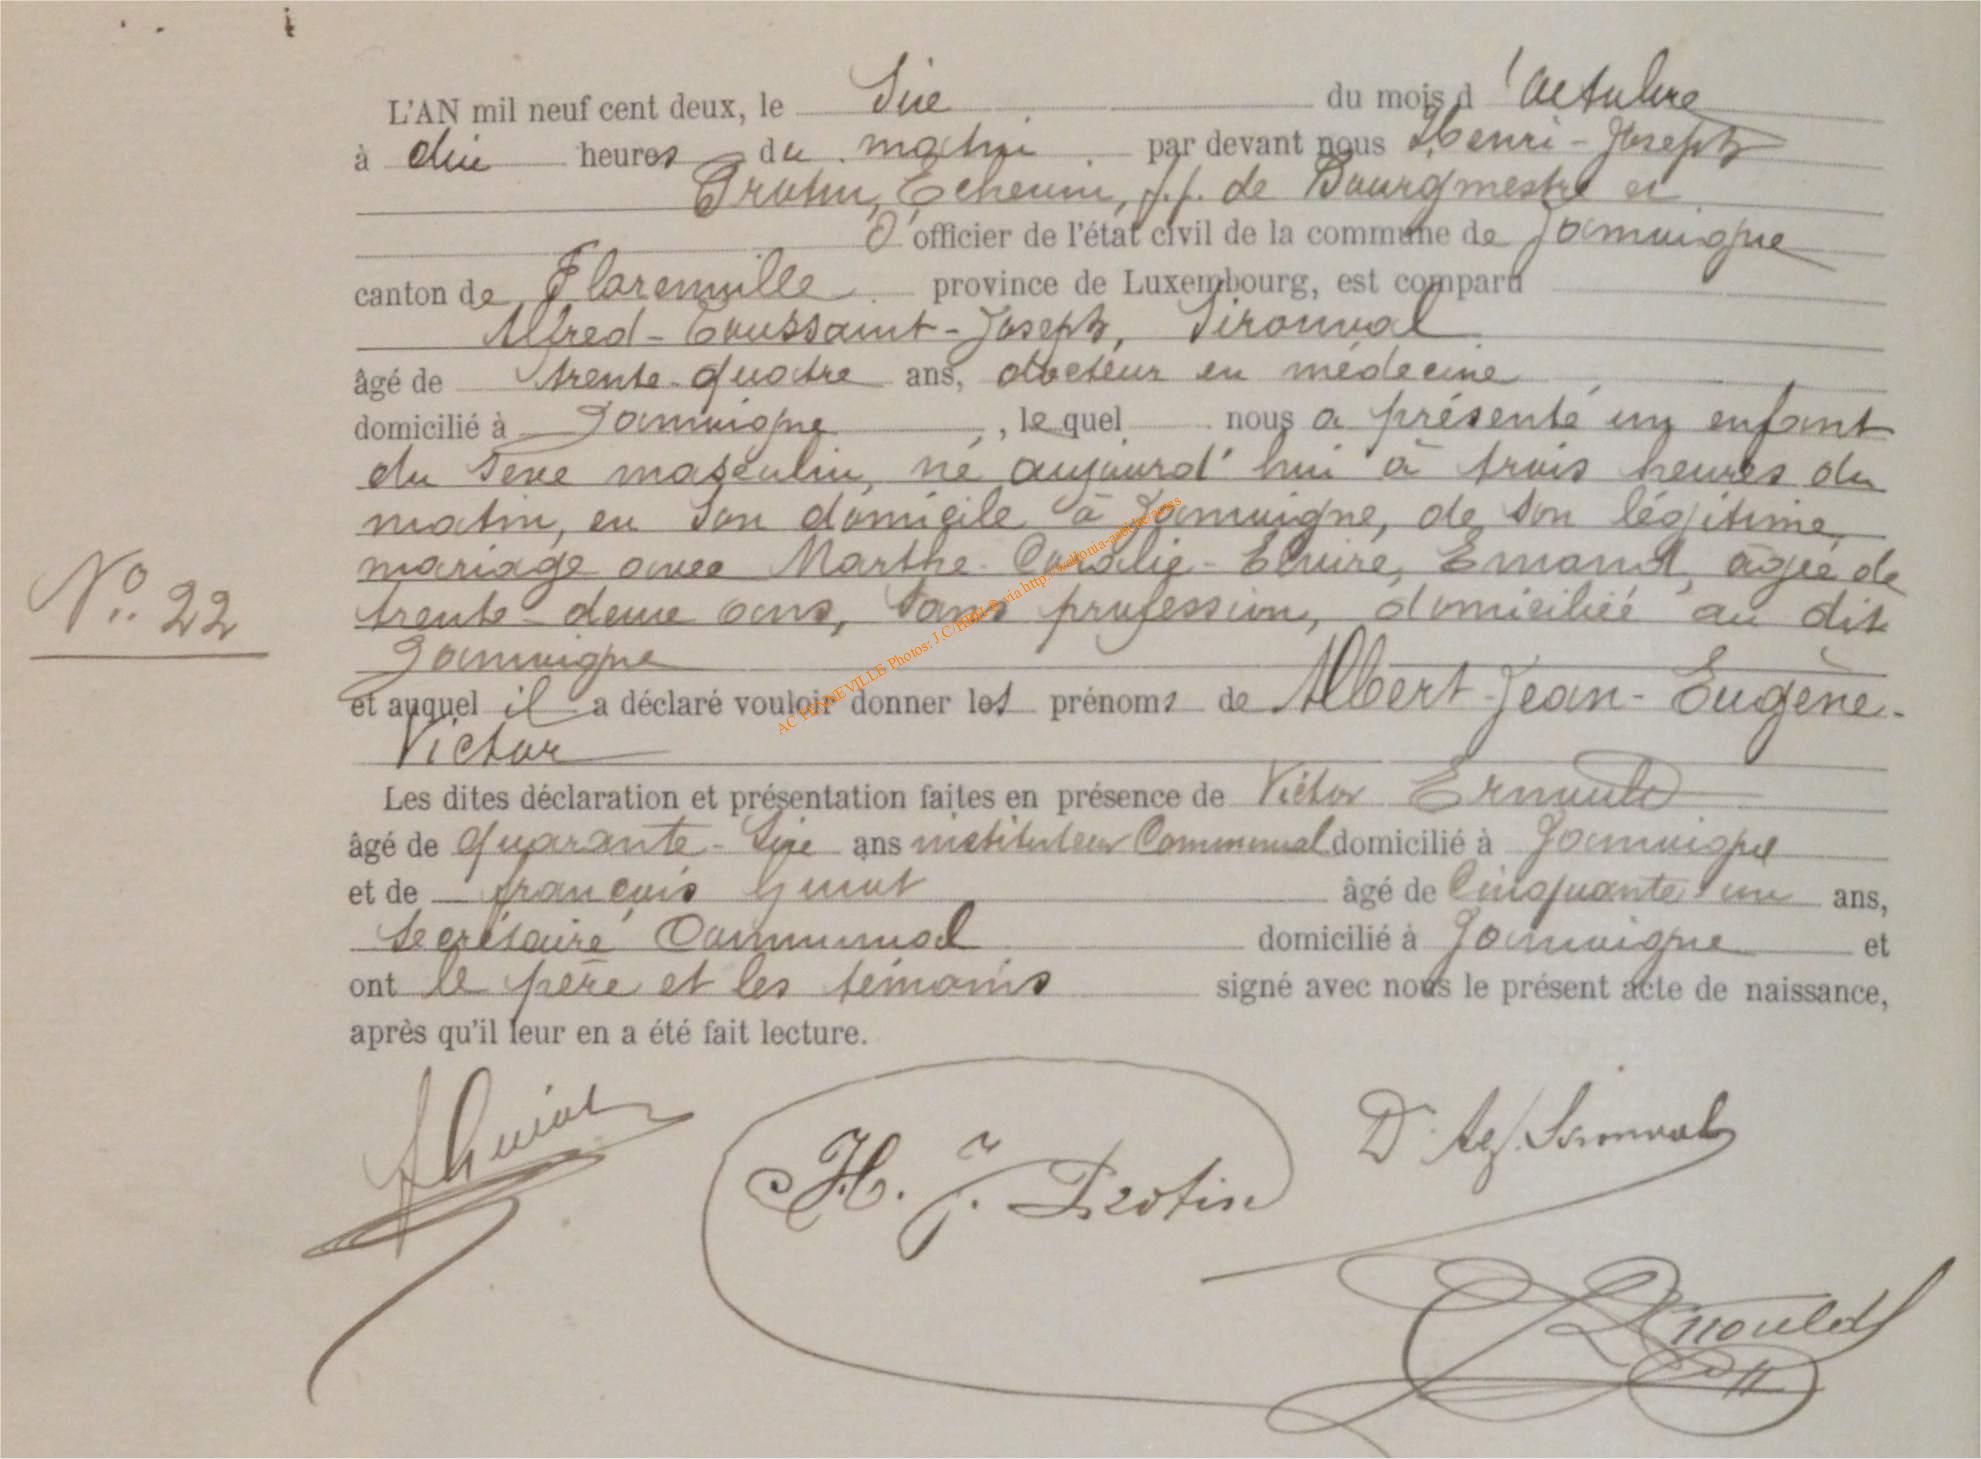 L'AN mil neuf cent deux, le Six du mois d'Octobre
à dix heures du matin par devant nous Henri-Joseph
Protin, Echevin, f.f. de Bourgmestre et
d'officier de l'état civil de la commune de Jamoigne
canton de Florenville province de Luxembourg, est comparu
Alfred-Toussaint-Joseph, Sironval
âgé de trente-quatre ans, docteur en médecine
domicilié à Jamoigne, lequel nous a présenté un enfant
du sexe masculin, né aujourd'hui à trois heures du
matin, en son domicile à Jamoigne, de son légitime
mariage avec Marthe-Coralie-Elvire, âgée de
trente-deux ans, sans profession, domiciliée au dit
Jamoigne
et auquel il a déclaré vouloir donner les prénoms de Albert-Jean-Eugène-
Victor
Les dites déclaration et présentation faites en présence de Victor Ernould
âgé de quarante-six ans instituteur Communal domicilié à Jamoigne
N° 22
et de françois Guiot âgé de Cinquante un ans,
Secrétaire Communal domicilié à Jamoigne et
ont le père et les témoins signé avec nous le présent acte de naissance,
après qu'il leur en a été fait lecture.
Guiot
H. J. Protin
Dr Sironval
Ernould
AC Photos: J.C. via